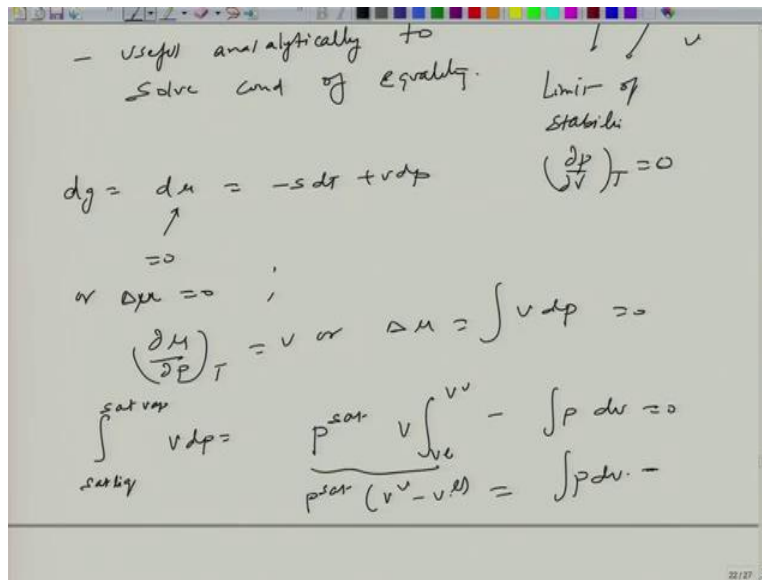 - Useful analalytically to
solve cond of equality.
v
Limit of
stabili
(∂p/∂V)_T = 0
dg = dμ = -s dT + v dp
= 0
or Δμ = 0 ;
(∂μ/∂P)_T = v or Δμ = ∫ v dp = 0
∫_{sat liq}^{sat vap} v dp = P^{sat} v ∫_{v^l}^{v^v} - ∫ p dv = 0
P^{sat} (v^v - v^l) = ∫ p dv. -
22/27